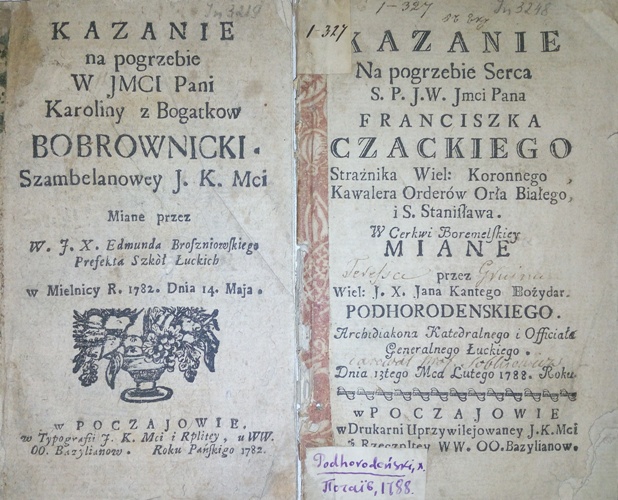 Jn 3219
KAZANIE
na pogrzebie
W JMCI Pani
Karoliny z Bogatkow
BOBROWNICKI.
Szambelanowey J. K. Mci
Miane przez
W. J. X. Edmunda Broszniowskiego
Prefekta Szkół Łuckich
w Mielnicy R. 1782. Dnia 14. Maja.
w POCZAJOWIE.
w Typografii J. K. Mci i Rplitey, u WW.
OO. Bazylianow. Roku Pańskiego 1782.
1-327
1-327
Jn 3248
KAZANIE
Na pogrzebie Serca
S. P. J.W. Jmci Pana
FRANCISZKA
CZACKIEGO
Strażnika Wiel: Koronnego,
Kawalera Orderów Orła Białego,
i S. Stanisława.
W Cerkwi Boremelskiey
MIANE
przez
Wiel: J. X. Jana Kantego Bożydar.
PODHORODENSKIEGO.
Archidiakona Katedralnego i Officiała
Generalnego Łuckiego.
Dnia 13tego Mca Lutego 1788. Roku
w POCZAJOWIE
w Drukarni Uprzywilejowaney J.K.Mci
i Rzeczpltey WW. OO. Bazylianow.
Podhorodeński, x.
Почаїв, 1788.